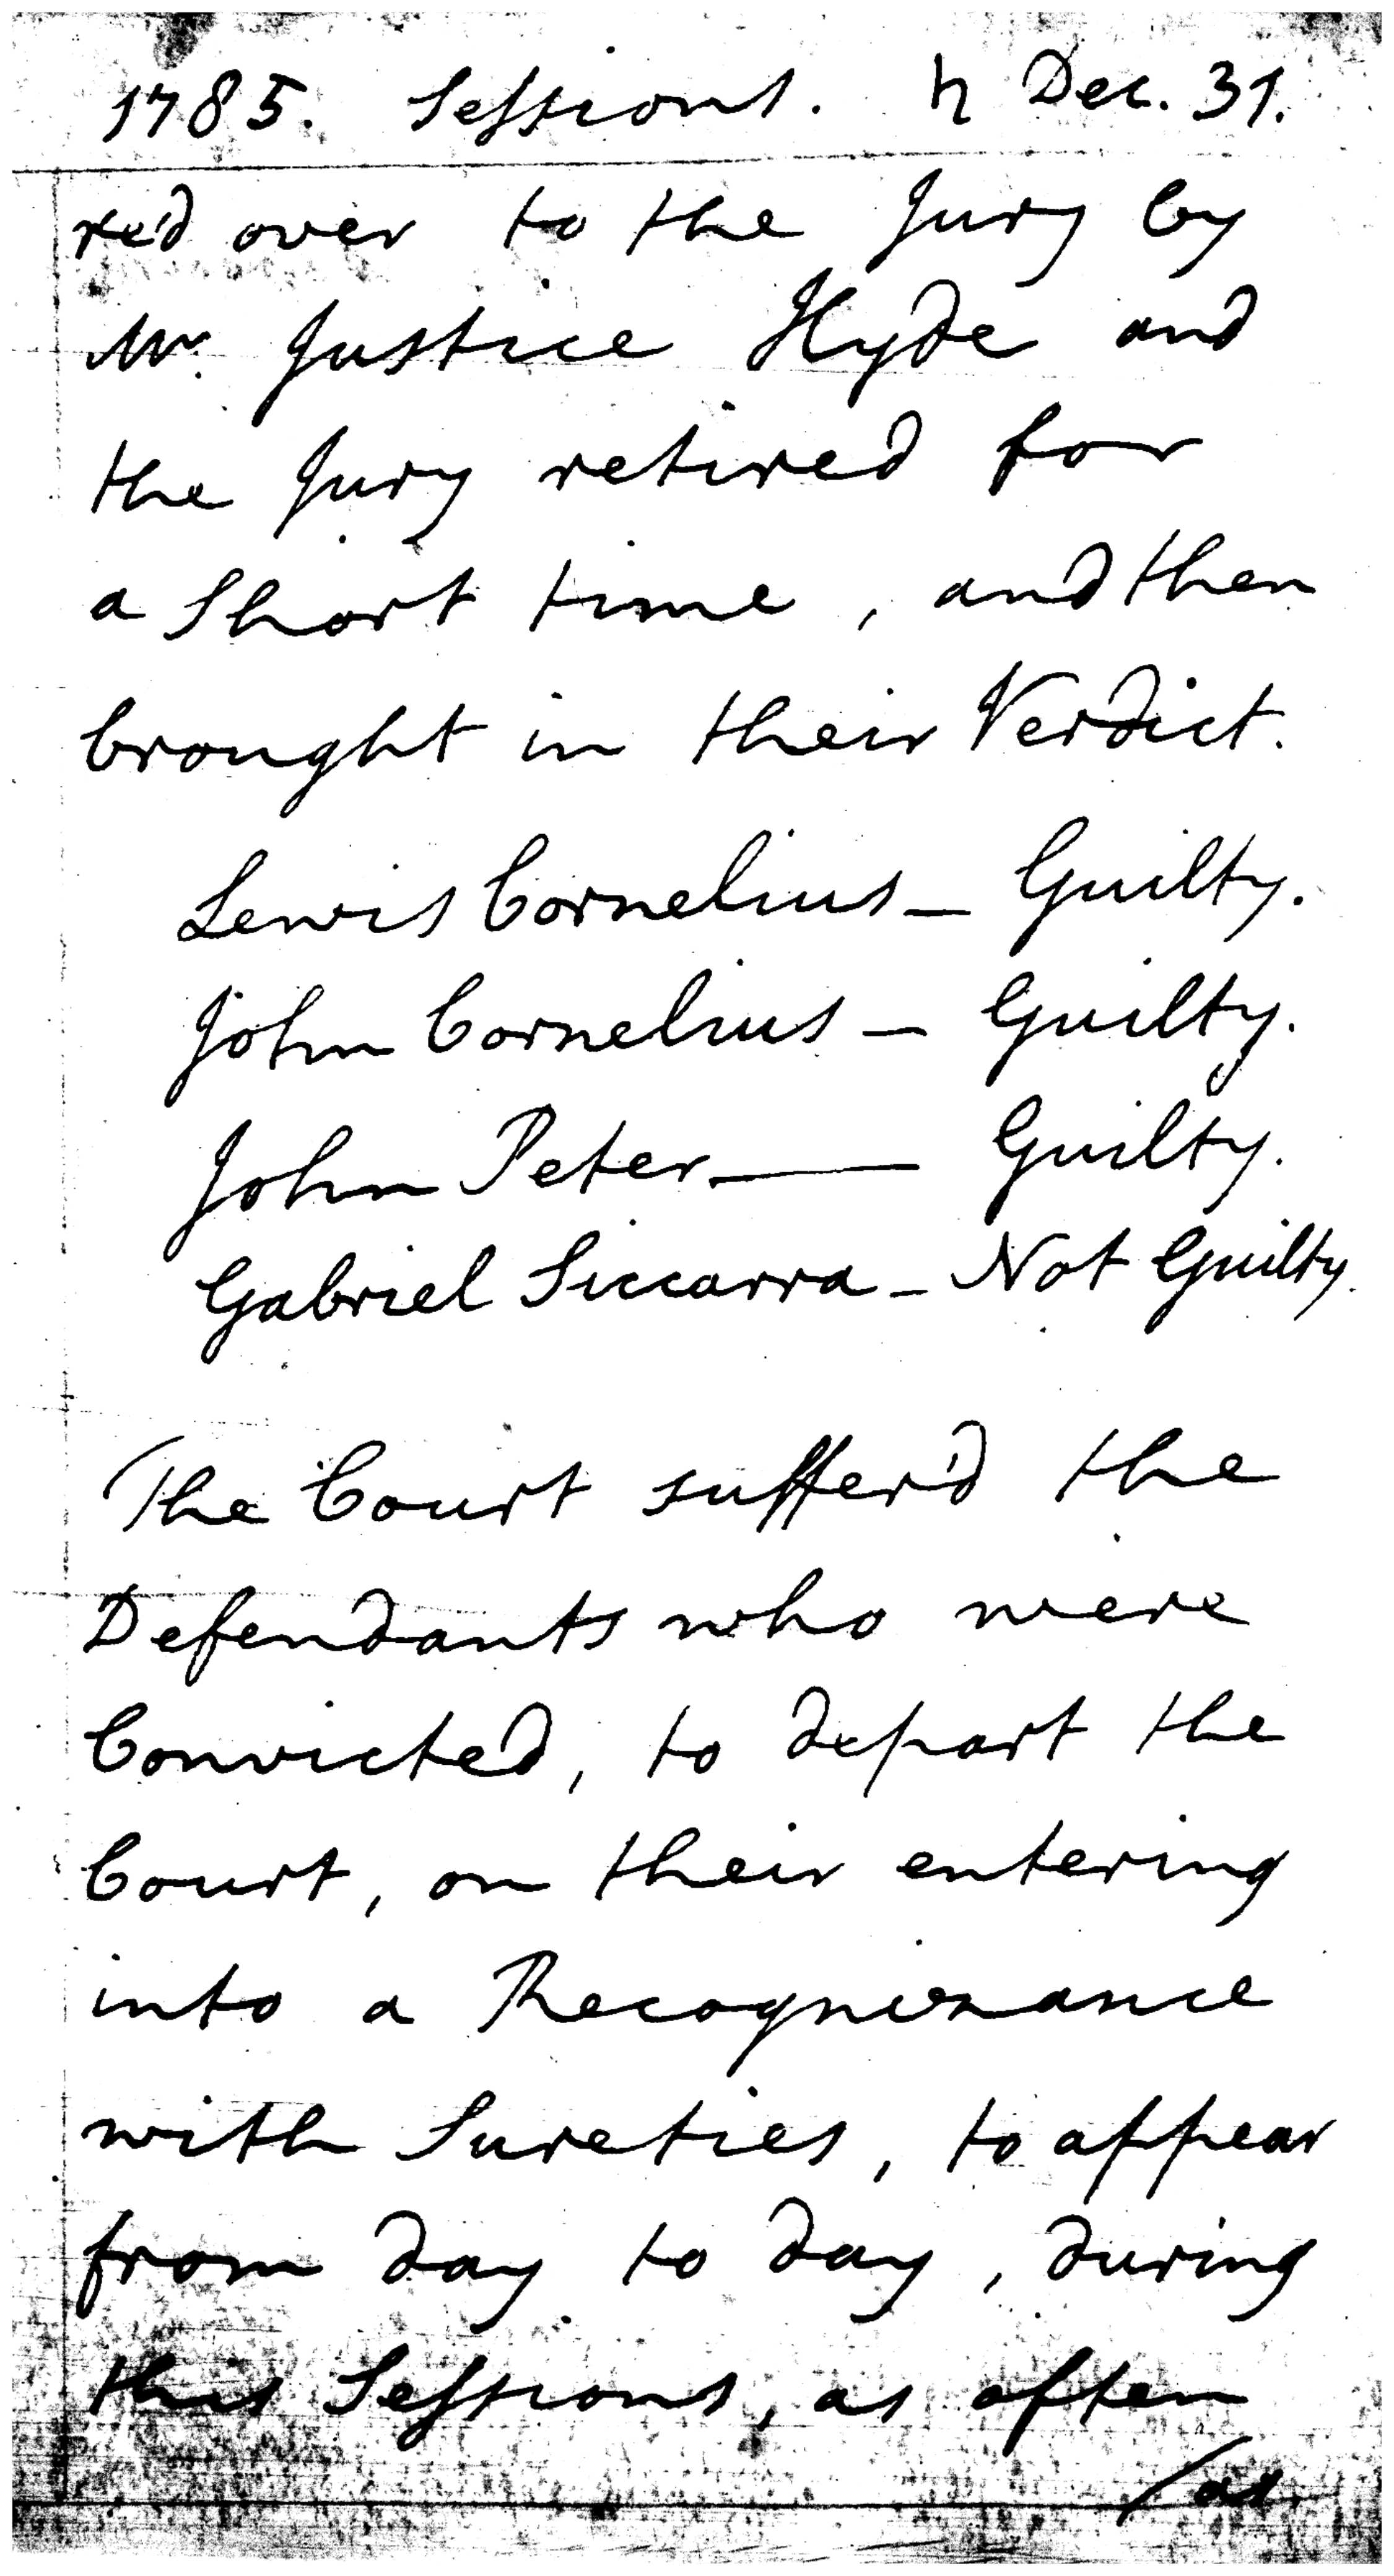 1785. Sessions. ♄ Dec. 31.
re'd over to the Jury by
Mr. Justice Hyde and
the Jury retired for
a Short time, and then
brought in their Verdict.
Lewis Cornelius — Guilty.
John Cornelius — Guilty.
John Peter — Guilty.
Gabriel Siccarra — Not Guilty.
The Court suffer'd the
Defendants who were
Convicted, to depart the
Court, on their entering
into a Recognizance
with Sureties, to appear
from day to day, during
this Sessions, as often
/as